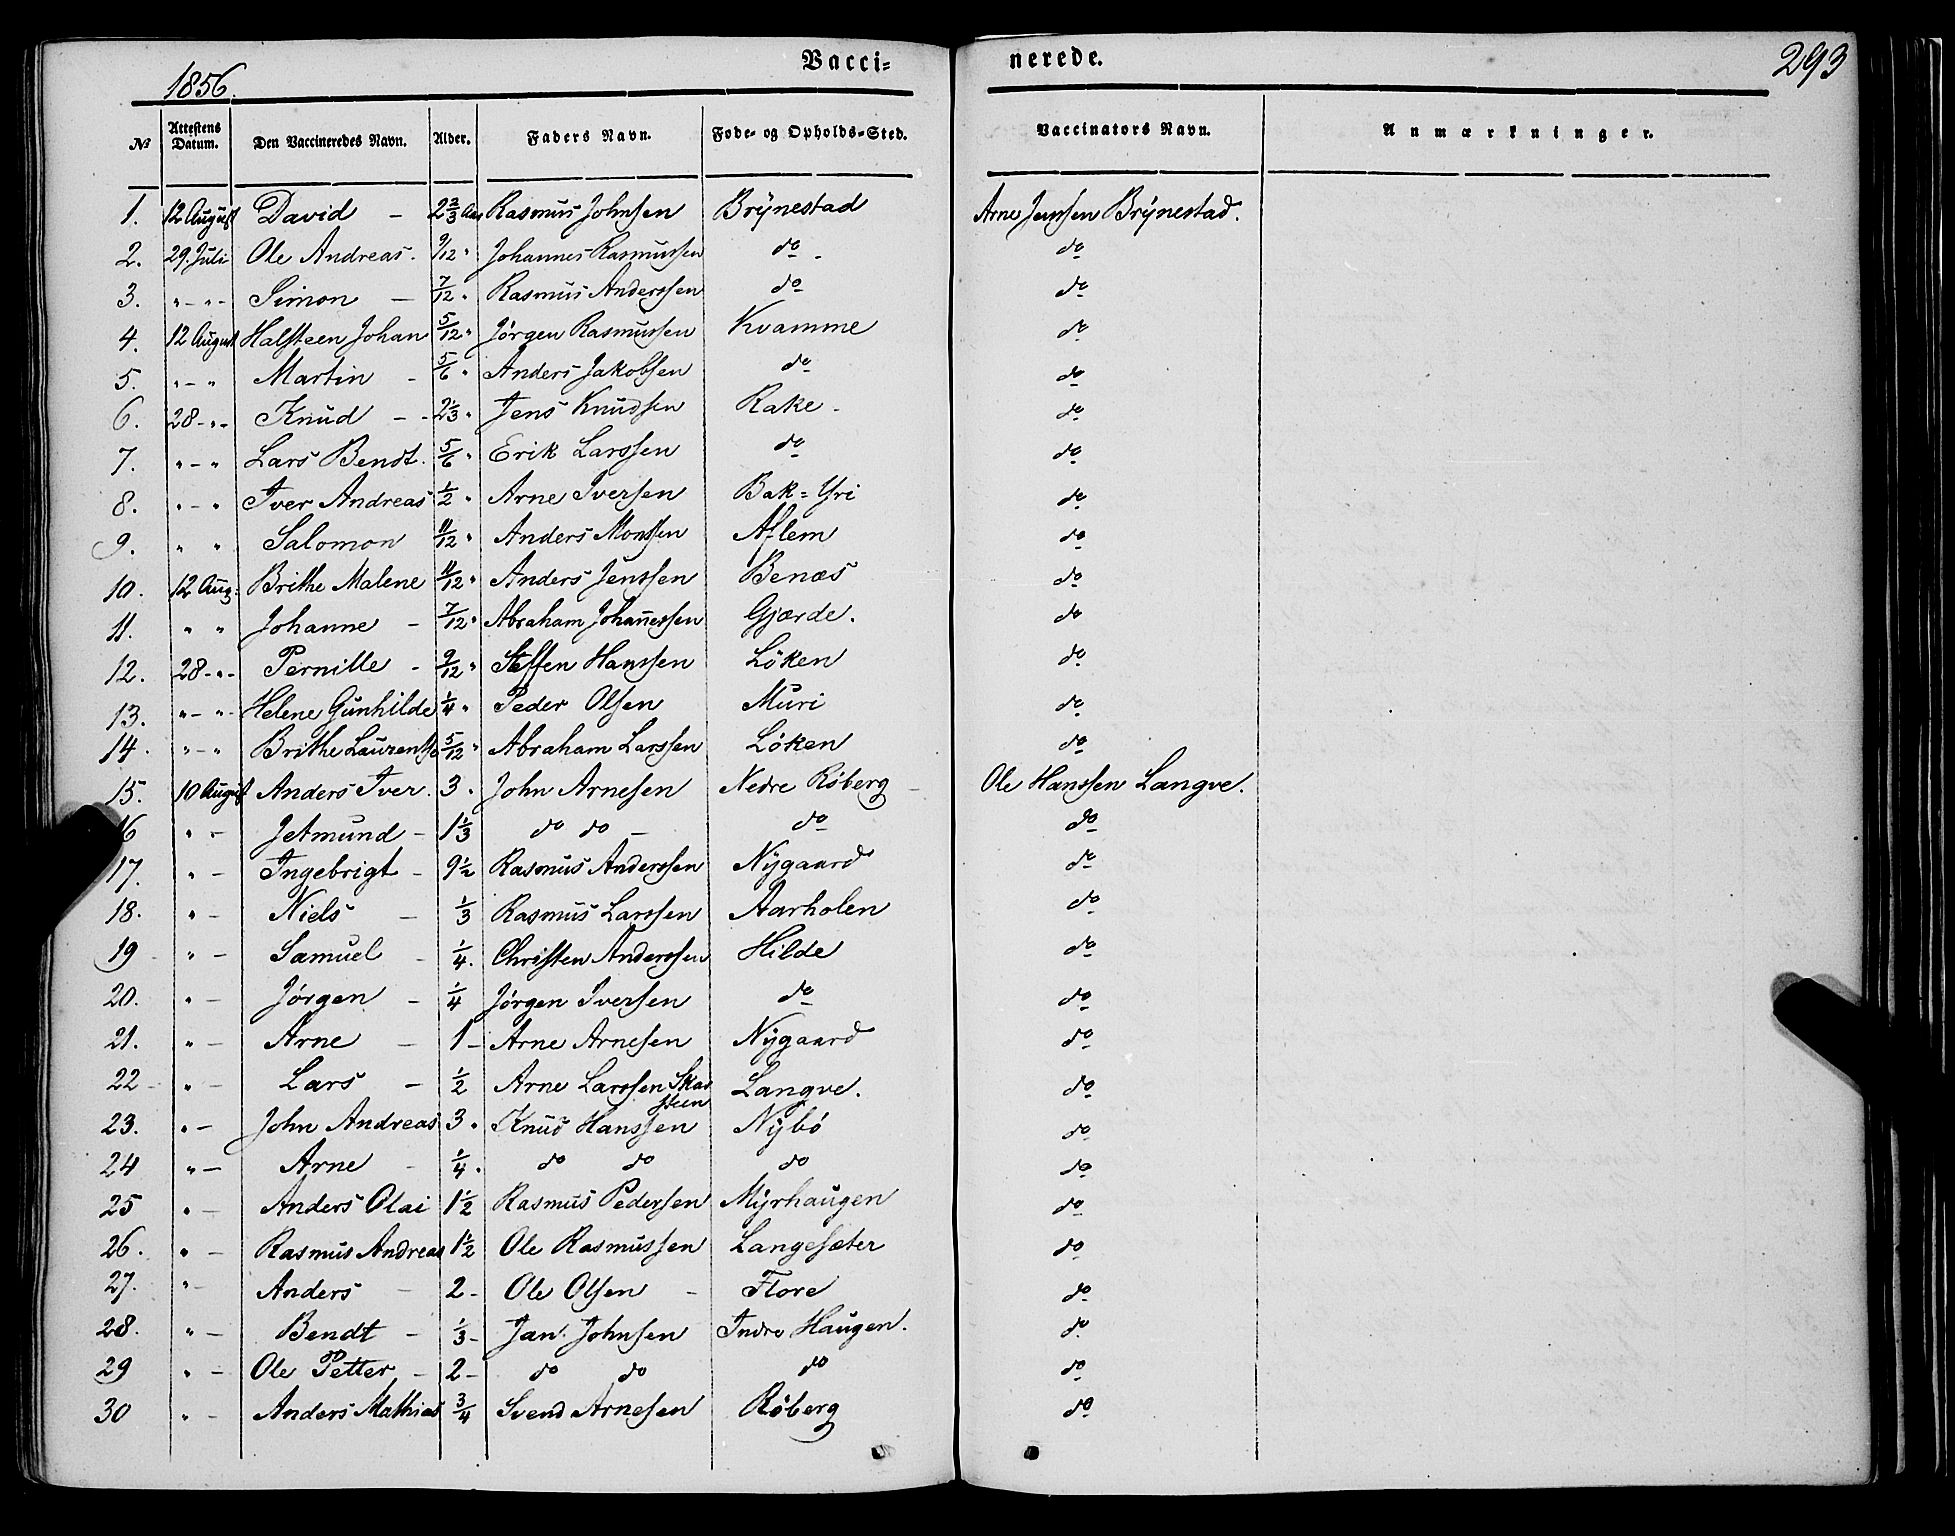 1856.
Vacci=
nerede.
293
No
Attestens Datum.
Den Vaccineredes Navn.
Alder.
Faders Navn.
Føde- og Opholds-Sted.
Vaccinators Navn.
Anmærkninger.
1. 12 August David – 2 2/3 Aar Rasmus Johnsen Brÿnestad Arne Jenssen Brÿnestad.
2. 29 Juli Ole Andreas. 9/12 " Johannes Rasmussen do - do
3. " - " - Simon – 7/12 " Rasmus Anderssen do do
4. 12 August Halsteen Johan 5/12 " Jörgen Rasmussen Kvamme do
5. " - " Martin - 5/6 " Anders Jakobsen do do
6. 28 - " - Knud - - 2 1/3 " Jens Knudsen Rake - do
7. " - " Lars Bendt. 5/6 " Erik Larssen do do
8. " - " Iver Andreas 1/2 " Arne Iversen Bak = Yri do
9. " " Salomon 11/12 " Anders Monssen Aflem do
10. 12 Aug: Brithe Malene 11/12 " Anders Jenssen Benæs do
11. " " Johanne - 7/12 " Abraham Johanessen Gjærde. do
12. 28 - " - Pernille - 9/12 " Steffen Hanssen Löken do
13. " - " - Helene Gunhilde 1/4 " Peder Olsen Muri do
14. " - " Brithe Laurentse 5/12 " Abraham Larssen Löken do
15. 10 August Anders Iver. 3 " John Arnesen Nedre Röberg - Ole Hanssen Langve.
16 " - Jetmund - 1 1/3 do do - do do
17. " - Ingebrigt - 9 1/2 Rasmus Anderssen Nÿgaard do
18. " - Niels - 1/3 Rasmus Larssen Aarholen do
19 - " - Samuel - 1/4. Christen Anderssen Hilde do
20. " - Jörgen - 1/4 Jörgen Iversen do do
21. " - Arne - 1 - Arne Arnesen Nÿgaard do
22 - " - Lars - 1/2 Arne Larssen Skaar
steen Langve. do
23. " - John Andreas 3 " Knud Hanssen Nÿbö do
24 " - Arne - 1/4. do do do do
25 " - Anders Olai 1 1/2 Rasmus Pedersen Mÿrhaugen do
26. " - Rasmus Andreas 1 1/2 Ole Rasmussen Langesæter do
27. " - Anders - 2 - Ole Olsen - Flore do
28. " - Bendt - 1/3 - Jan. Johnsen Indre Haugen. do
29 " - Ole Petter - 2 - do do do do
30 " - Anders Mathias 3/4 Svend Arnesen Röberg do